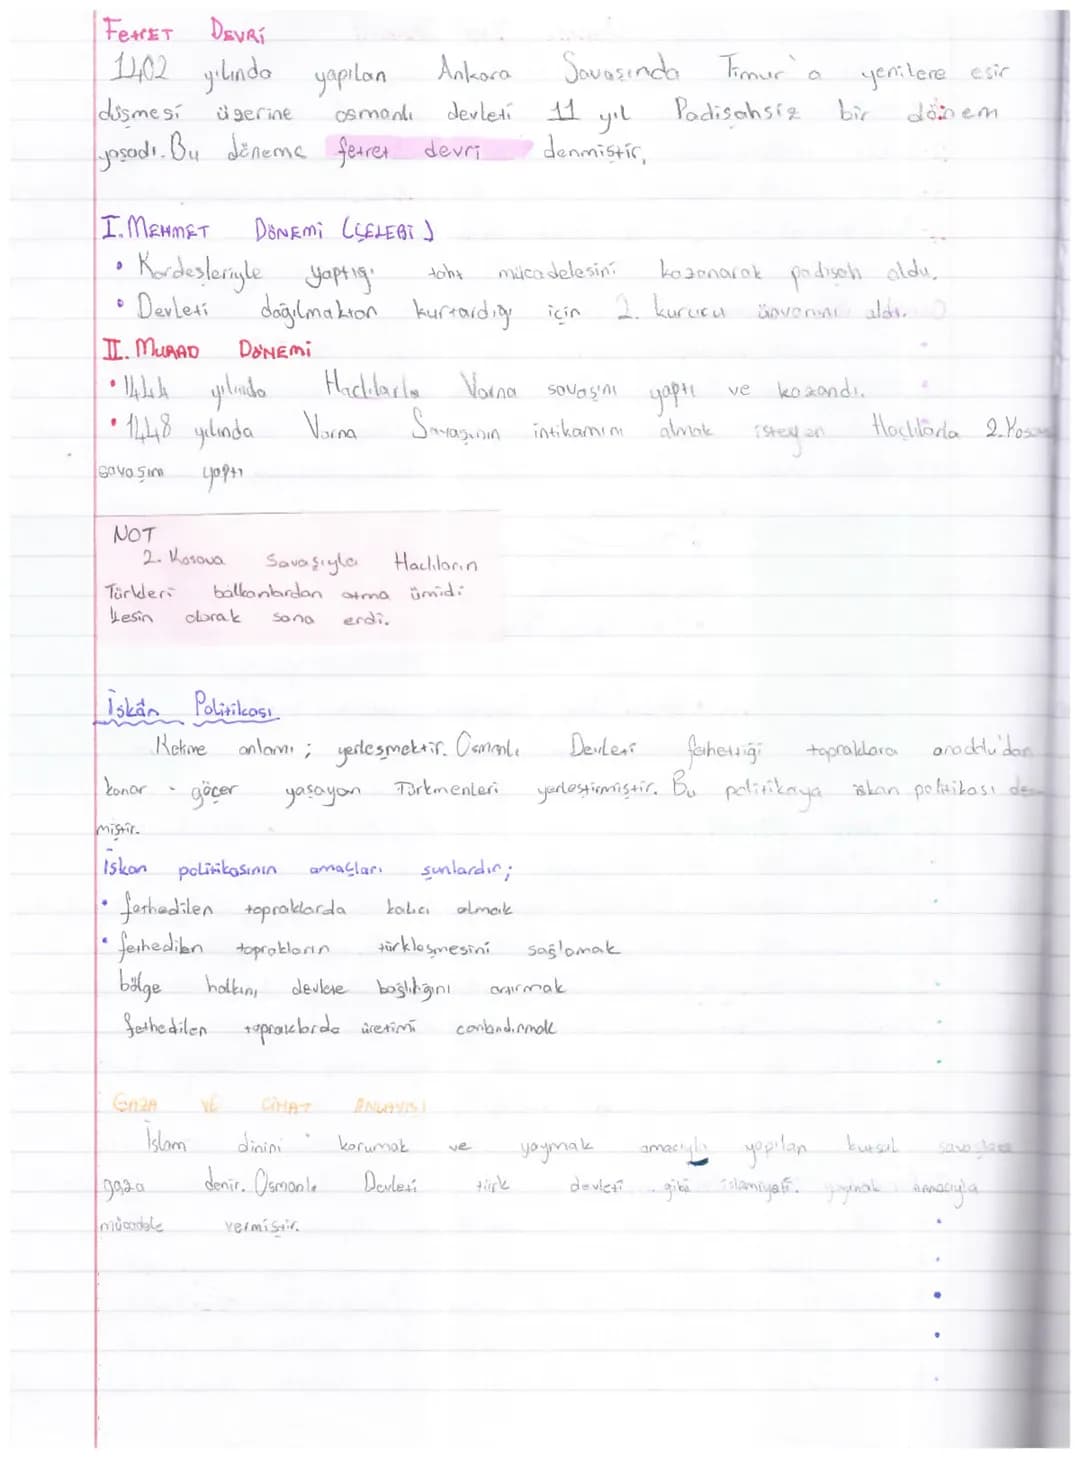 Fetret DEVRİ
1402 yılında yapılan Ankara Savaşında Timur'a yenilere esir
düşmesi üzerine osmanlı devleti 11 yıl Padişahsız bir dönem
yaşadı. Bu döneme fetret devri denmiştir.
I. MEHMET DÖNEMİ (ÇELEBİ)
• Kardeşleriyle yaptığı taht mücadelesini kazanarak padişah oldu.
• Devleti dağılmaktan kurtardığı için 2. kurucu ünvanını aldı.
II. MURAD DÖNEMİ
• 1444 yılında Haçlılarla Varna savaşını yaptı ve kazandı.
• 1448 yılında Varna Savaşının intikamını almak isteyen Haçlılarla 2. Kosova
savaşını yaptı
NOT
2. Kosova Savaşıyla Haçlıların
Türkleri balkanlardan atma ümidi
kesin olarak sona erdi.
İskân Politikası
Kelime anlamı ; yerleşmektir. Osmanlı Devleti fethettiği topraklara anadolu'dan
konar - göçer yaşayan Türkmenleri yerleştirmiştir. Bu politikaya iskan politikası den
miştir.
İskan politikasının amaçları şunlardır;
• fethedilen topraklarda kalıcı olmak
• fethedilen toprakların türkleşmesini sağlamak
bölge halkını devlete bağlılığını artırmak
fethedilen topraklarda üretimi canlandırmak
GAZA VE CİHAT ANLAYIŞI
İslam dinini korumak ve yaymak amacıyla yapılan kutsal savaşlara
gaza denir. Osmanlı Devleti türk devleti gibi islamiyeti yaymak amacıyla
mücadele vermiştir.